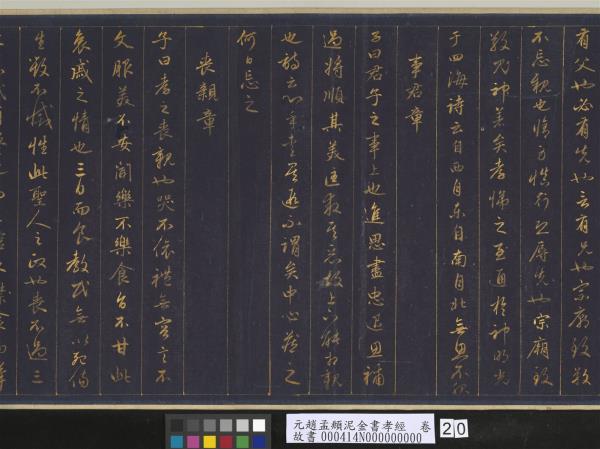 有父也必有先也言有兄也宗廟致敬
不忘親也脩身慎行恐辱先也宗廟致
敬鬼神著矣孝悌之至通於神明光
于四海詩云自西自東自南自北無思不服
事君章
子曰君子之事上也進思盡忠退思補
過將順其美匡救其惡故上下能相親
也詩云心乎愛矣遐不謂矣中心藏之
何日忘之
喪親章
子曰孝子之喪親也哭不偯禮無容言不
文服美不安聞樂不樂食旨不甘此
哀慼之情也三日而食教民無以死傷
生毀不滅性此聖人之政也喪不過三
元趙孟頫泥金書孝經 卷
故書 000414N000000000
20